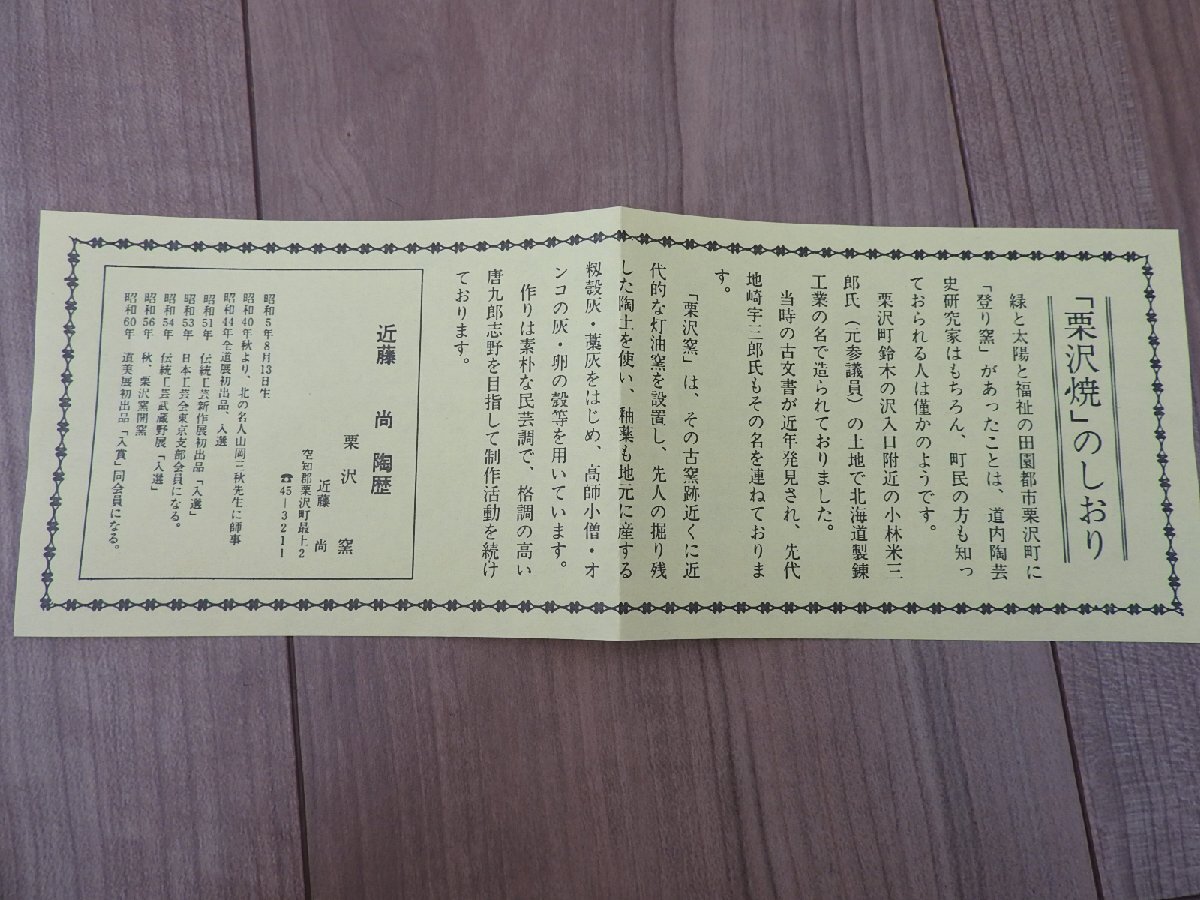 「栗沢焼」のしおり
緑と太陽と福祉の田園都市栗沢町に
「登り窯」があったことは、道内陶芸
史研究家はもちろん、町民の方も知っ
ておられる人は僅かのようです。
栗沢町鈴木の沢入口附近の小林米三
郎氏（元参議員）の土地で北海道製錬
工業の名で造られておりました。
当時の古文書が近年発見され、先代
地崎宇三郎氏もその名を連ねておりま
す。
「栗沢窯」は、その古窯跡近くに近
代的な灯油窯を設置し、先人の掘り残
した陶土を使い、釉薬も地元に産する
籾殻灰・藁灰をはじめ、高師小僧・オ
ンコの灰・卵の殻等を用いています。
作りは素朴な民芸調で、格調の高い
唐九郎志野を目指して制作活動を続け
ております。
近藤 尚 陶歴
栗沢窯
近藤 尚
空知郡栗沢町最上2
☎45―3211
昭和5年8月13日生
昭和40年秋より、北の名人山岡三秋先生に師事
昭和44年全道展初出品、入選
昭和51年 伝統工芸新作展初出品「入選」
昭和53年 日本工芸会東京支部会員になる。
昭和54年 伝統工芸武蔵野展「入選」
昭和56年 秋、栗沢窯開窯
昭和60年 道美展初出品「入賞」同会員になる。